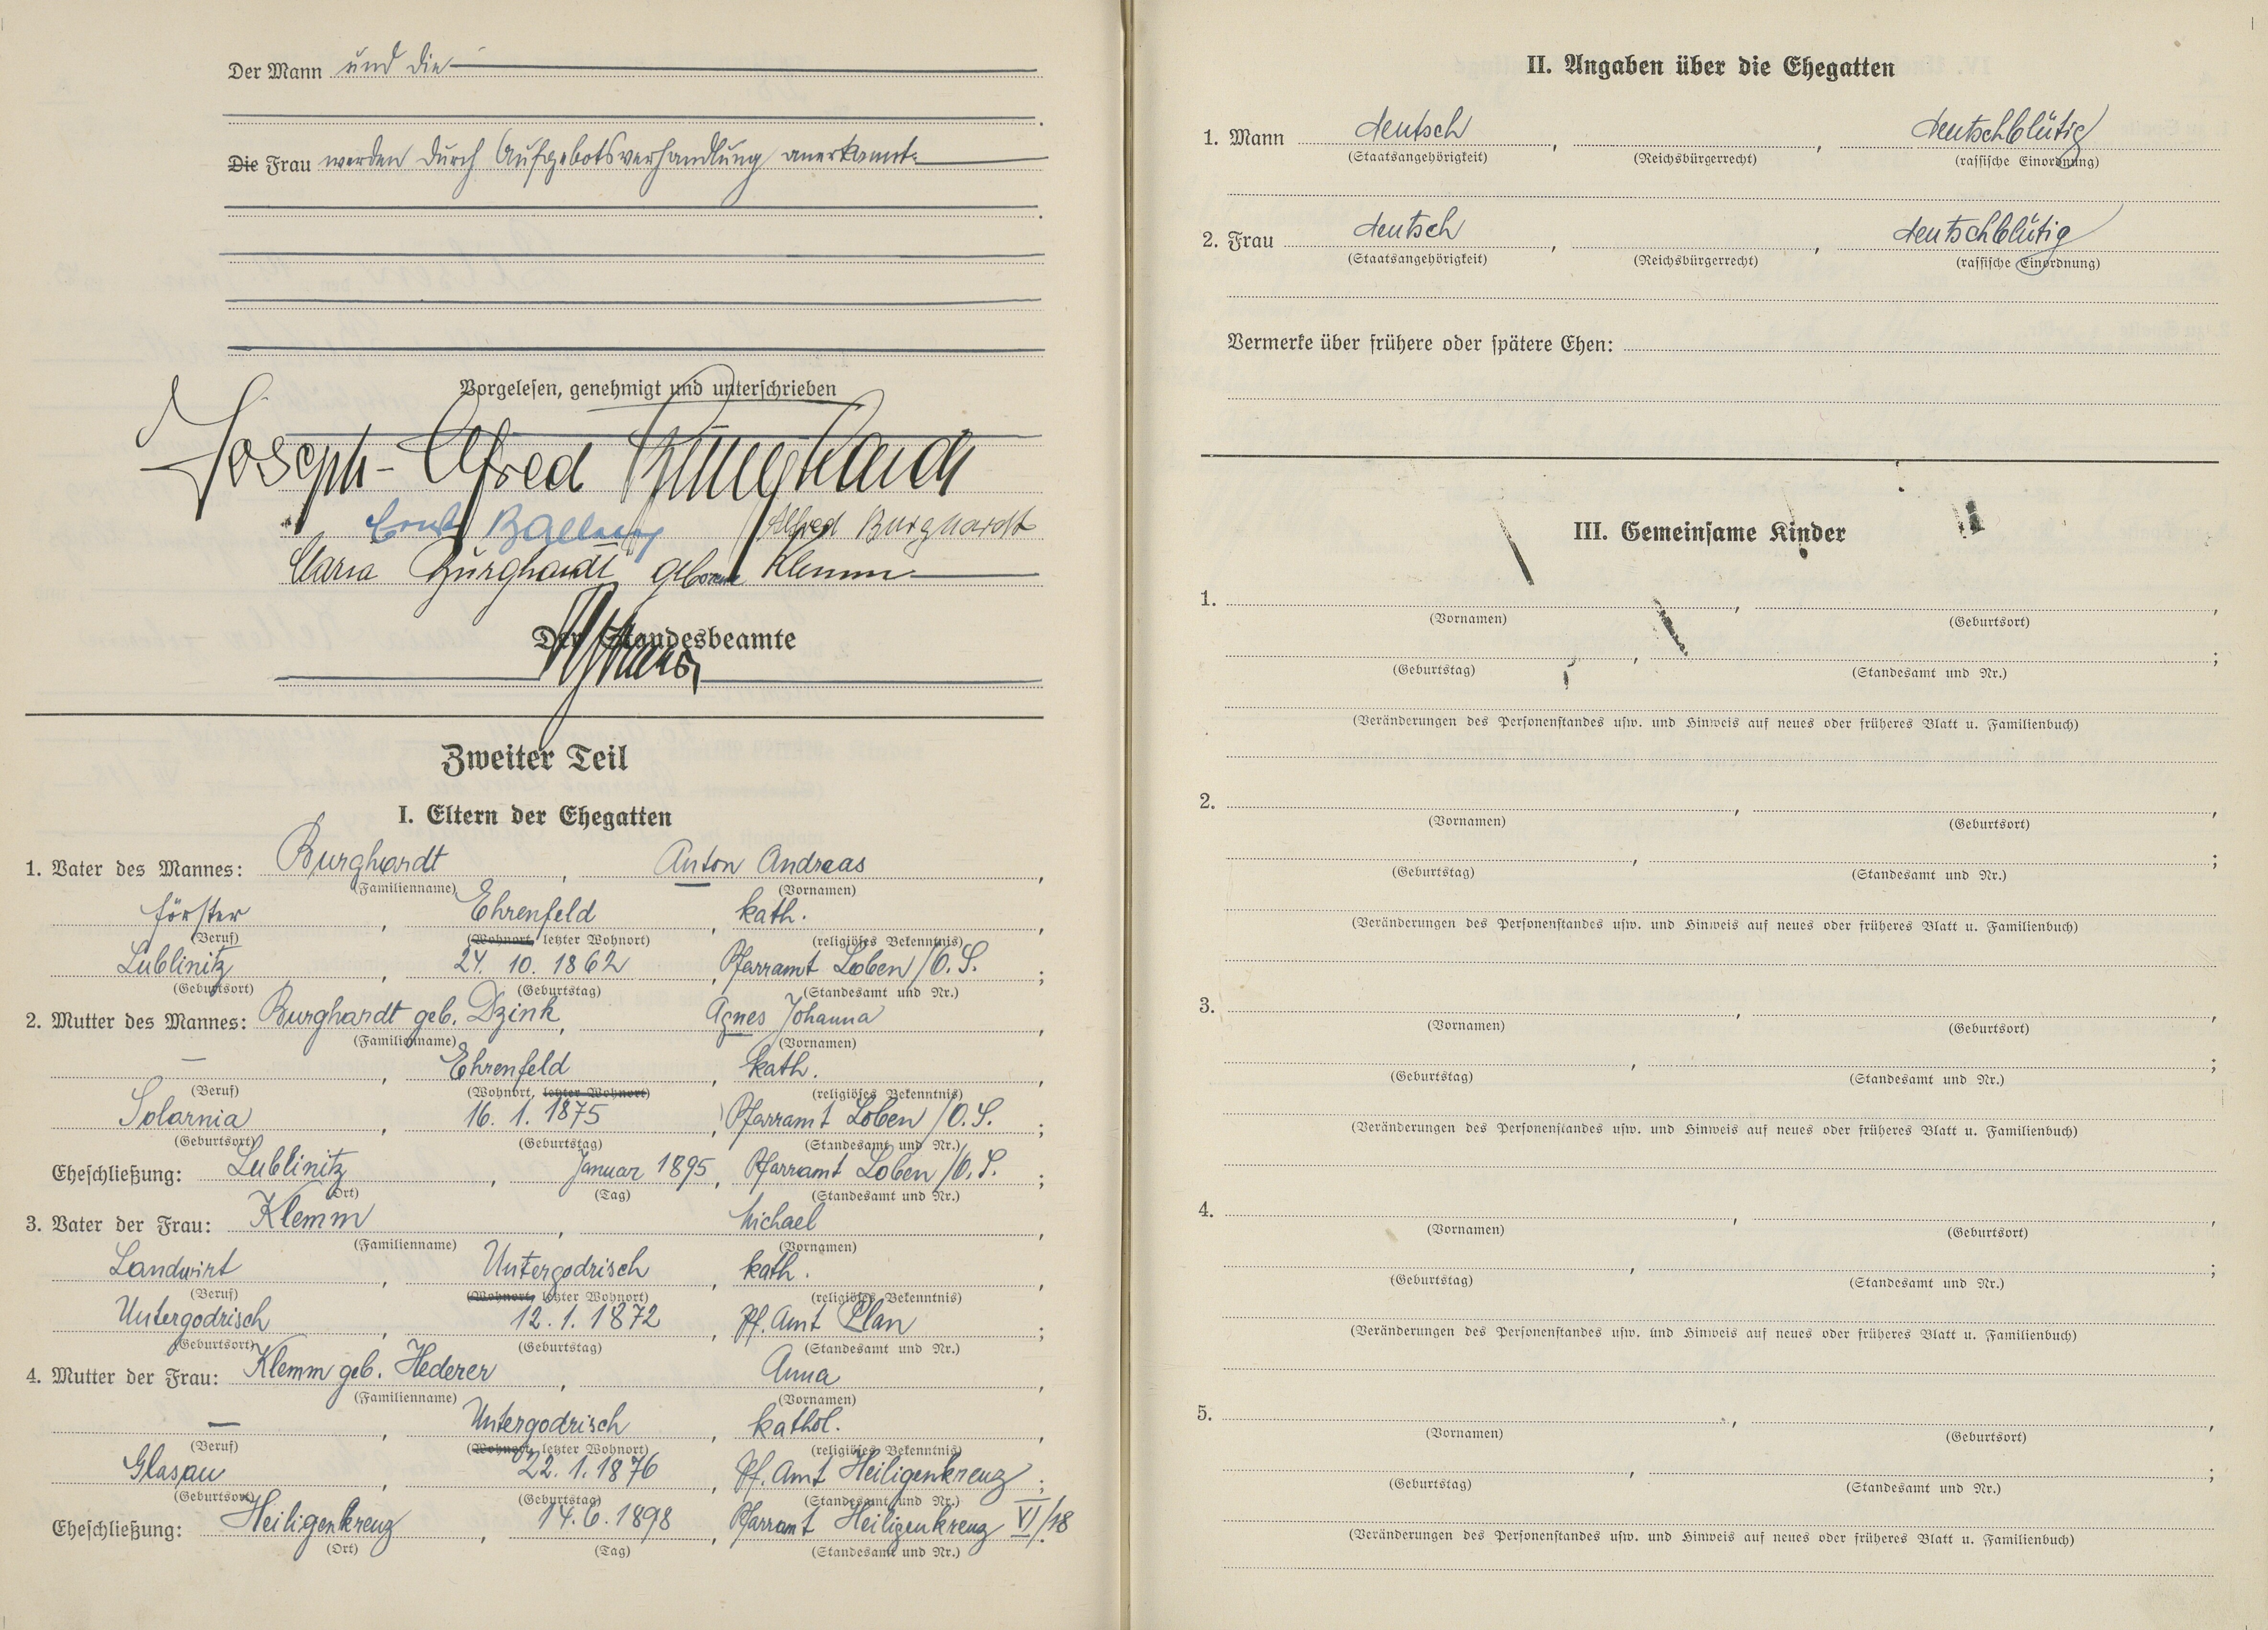 Der Mann und die
Die Frau werden durch Aufgebotsverhandlung anerkannt.
Vorgelesen, genehmigt und unterschrieben
Joseph-Alfred Burghardt
Alfred Burghardt
Maria Burghardt geborene Klemm
Der Standesbeamte
Zweiter Teil
I. Eltern der Ehegatten
1. Vater des Mannes: Burghardt, Anton Andreas,
(Familienname) (Vornamen)
Förster, Ehrenfeld, kath.,
(Beruf) (Wohnort, letzter Wohnort) (religiöses Bekenntnis)
Lublinitz, 24. 10. 1862, Pfarramt Loben/O.S.;
(Geburtsort) (Geburtstag) (Standesamt und Nr.)
2. Mutter des Mannes: Burghardt geb. Dzink, Agnes Johanna,
(Familienname) (Vornamen)
—, Ehrenfeld, kath.,
(Beruf) (Wohnort, letzter Wohnort) (religiöses Bekenntnis)
Solarnia, 16. 1. 1875, Pfarramt Loben/O.S.;
(Geburtsort) (Geburtstag) (Standesamt und Nr.)
Eheschließung: Lublinitz, Januar 1895, Pfarramt Loben/O.S.;
(Ort) (Tag) (Standesamt und Nr.)
3. Vater der Frau: Klemm, Michael,
(Familienname) (Vornamen)
Landwirt, Untergodrisch, kath.,
(Beruf) (Wohnort, letzter Wohnort) (religiöses Bekenntnis)
Untergodrisch, 12. 1. 1872, Pf. Amt Plan;
(Geburtsort) (Geburtstag) (Standesamt und Nr.)
4. Mutter der Frau: Klemm geb. Hederer, Anna,
(Familienname) (Vornamen)
—, Untergodrisch, kathol.,
(Beruf) (Wohnort, letzter Wohnort) (religiöses Bekenntnis)
Glasau, 22. 1. 1876, Pf. Amt Heiligenkreuz;
(Geburtsort) (Geburtstag) (Standesamt und Nr.)
Eheschließung: Heiligenkreuz, 14. 6. 1898, Pfarramt Heiligenkreuz VI/18
(Ort) (Tag) (Standesamt und Nr.)
II. Angaben über die Ehegatten
1. Mann deutsch, , deutschblütig
(Staatsangehörigkeit) (Reichsbürgerrecht) (rassische Einordnung)
2. Frau deutsch, , deutschblütig
(Staatsangehörigkeit) (Reichsbürgerrecht) (rassische Einordnung)
Vermerke über frühere oder spätere Ehen:
III. Gemeinsame Kinder
1. , ,
(Vornamen) (Geburtsort)
, ;
(Geburtstag) (Standesamt und Nr.)
(Veränderungen des Personenstandes usw. und Hinweis auf neues oder früheres Blatt u. Familienbuch)
2. , ,
(Vornamen) (Geburtsort)
, ;
(Geburtstag) (Standesamt und Nr.)
(Veränderungen des Personenstandes usw. und Hinweis auf neues oder früheres Blatt u. Familienbuch)
3. , ,
(Vornamen) (Geburtsort)
, ;
(Geburtstag) (Standesamt und Nr.)
(Veränderungen des Personenstandes usw. und Hinweis auf neues oder früheres Blatt u. Familienbuch)
4. , ,
(Vornamen) (Geburtsort)
, ;
(Geburtstag) (Standesamt und Nr.)
(Veränderungen des Personenstandes usw. und Hinweis auf neues oder früheres Blatt u. Familienbuch)
5. , ,
(Vornamen) (Geburtsort)
, ;
(Geburtstag) (Standesamt und Nr.)
(Veränderungen des Personenstandes usw. und Hinweis auf neues oder früheres Blatt u. Familienbuch)